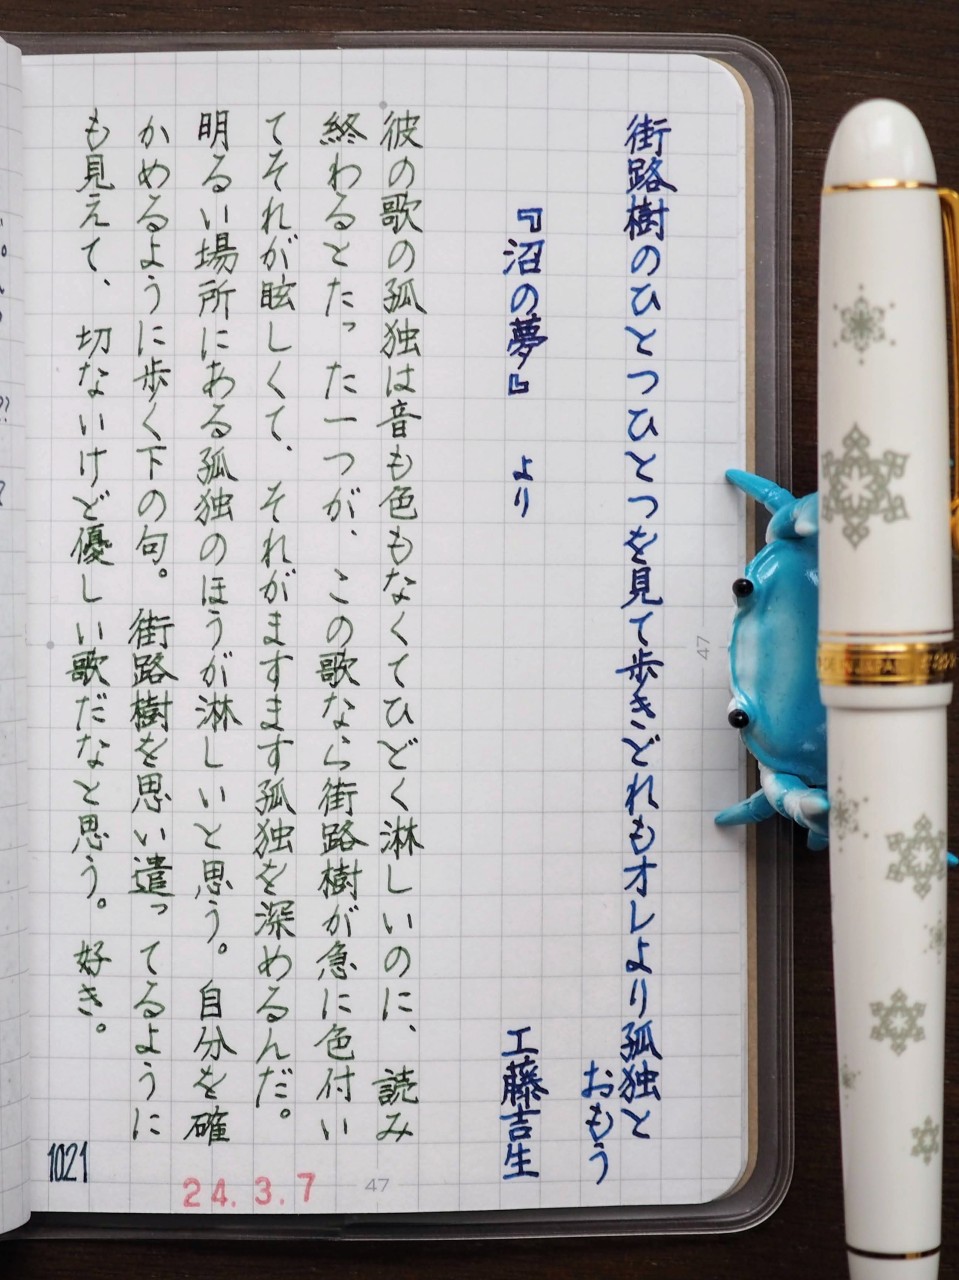 街路樹のひとつひとつを見て歩きどれもオレより孤独と
おもう
『沼の夢』 より
工藤吉生
彼の歌の孤独は音も色もなくてひどく淋しいのに、読み
終わるとたった一つが、この歌なら街路樹が急に色付い
てそれが眩しくて、それがますます孤独を深めるんだ。
明るい場所にある孤独のほうが淋しいと思う。自分を確
かめるように歩く下の句。街路樹を思い遣ってるように
も見えて、切ないけど優しい歌だなと思う。好き。
1021
24.3.7
47
47